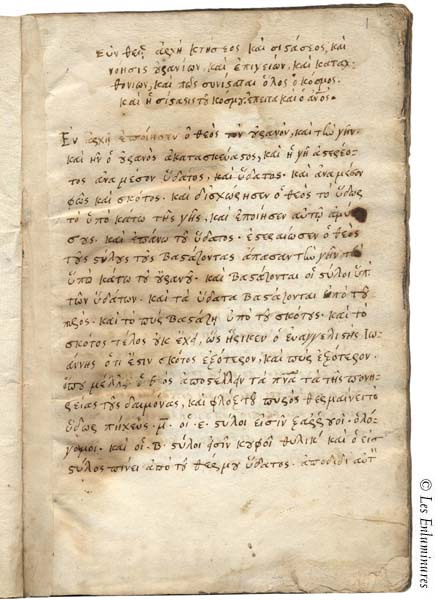 1
ἀρχὴ κτήσεος καὶ συστάσεος, καὶ
νοησις οὐρανίων, καὶ ἐπιγείων, καὶ καταχ
θονίων, καὶ πῶς συνίσταται ὁ λος ὁ κόσμος.
καὶ ἡ σύστασις τοῦ κόσμου, ἔπειτα καὶ ὁ ἄνος.
Ἐν ἀρχῇ ἐποίησεν ὁ θεὸς τὸν οὐρανον, καὶ τὴν γῆν.
καὶ ἦν ὁ οὐρανὸς ἀκατασκεύαστος, καὶ ἡ γῆ
ἀνα μεσον ὕδατος, καὶ ὕδατος. καὶ ἀνα μέσον
φῶς καὶ σκότος. καὶ διεχώρησεν ὁ θεὸς τὸ ὕδωρ
τὸ ὑπο κάτω τῆς γῆς, καὶ ἐποίησεν αὐτῷ
καὶ ἐπάνω τοῦ ὕδατος. ἐστερέωσεν ὁ θεὸς
τοὺς στύλους τοὺς βαστάζοντας ἅπασαν τὴν γῆν
ὑπο κάτω τοῦ οὐρανοῦ. καὶ βαστάζονται οἱ στύλοι ὑπὸ
τῶν ὑδάτων. καὶ τὰ ὕδατα βαστάζονται ὑπὸ τοῦ
πυρός. καὶ τὸ πῦρ βαστάζει ὑπὸ τοῦ σκότους. καὶ τὸ
σκότος τέλος οὐκ ἔχει, ὡς εἴρικεν ὁ εὐαγγελιστὴς Ἰω
άννης ὅτι ἔστιν σκότος ἐξότερον, καὶ πῦρ ἐξότερον.
ὅπου μέλλει ὁ θεὸς ἀποστέλλην τὰ πνα τὰ τῆς πονη
ρείας τοὺς δαιμόνας, καὶ φλὸξ τοῦ πυρὸς
ὕδωρ πήχεος. μ. οἱ. ε. στύλοι εἰσὶν
καὶ οἱ. β. στύλοι ἠσὶν κυφοὶ καὶ ὁ εἷς
στύλος πίνει ἀπὸ τοῦ θερμοῦ ὕδατος. ἀποδίδει
© Les Enluminures